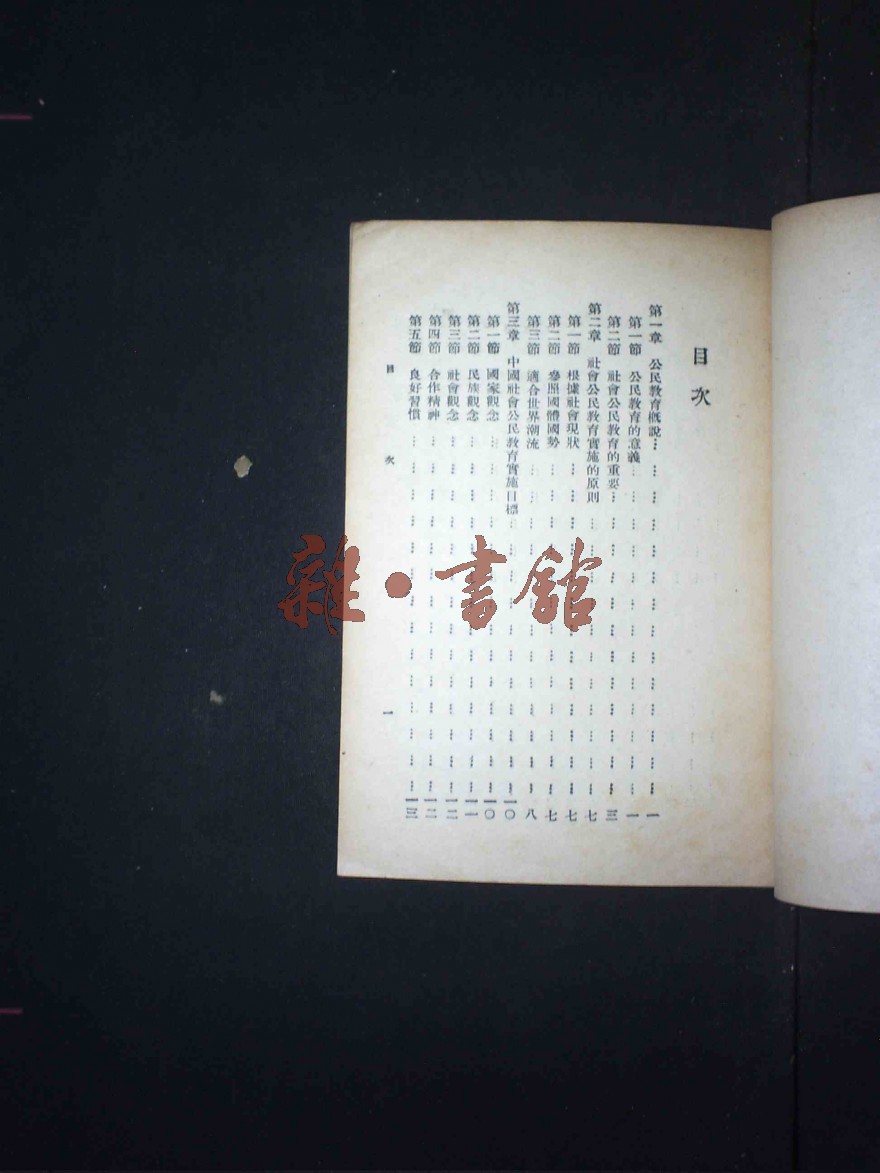 目次
第一章 公民教育概說……一
第一節 公民教育的意義……一
第二節 社會公民教育的重要……三
第二章 社會公民教育實施的原則……七
第一節 根據社會現狀……七
第二節 參照國體國勢……七
第三節 適合世界潮流……八
第三章 中國社會公民教育實施目標……一〇
第一節 國家觀念……一〇
第二節 民族觀念……一一
第三節 社會觀念……一二
第四節 合作精神……一二
第五節 良好習慣……一三
目次 一
雜·書館